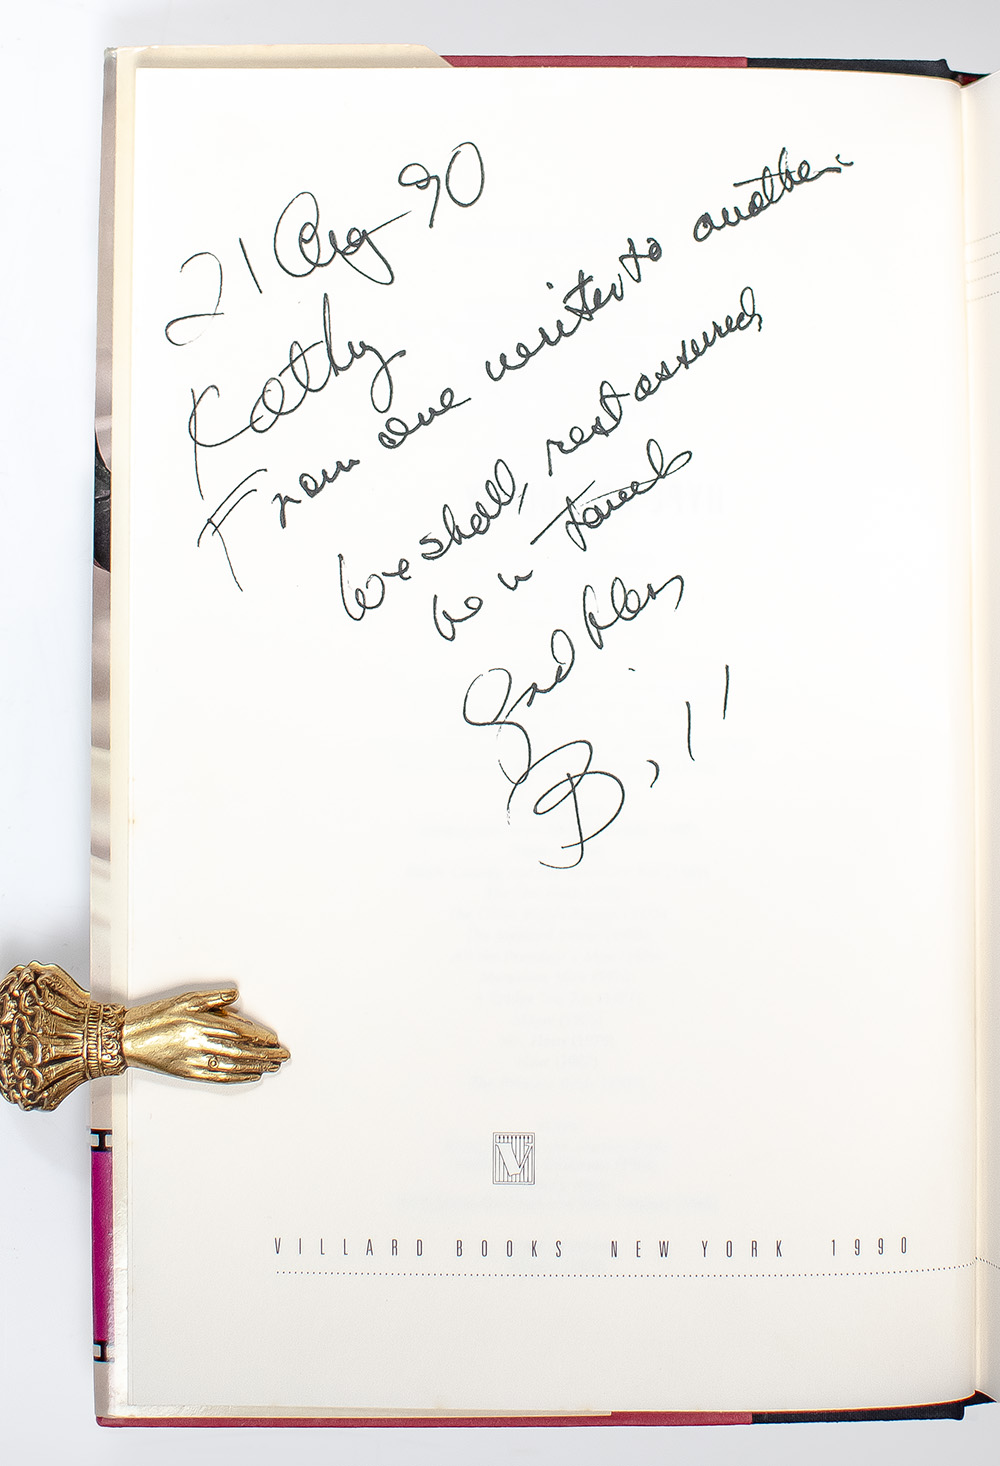 21 Aug 90
Kathy
From one writer to another.
We shall, rest assured,
be in touch
God Bless
Bill
VILLARD BOOKS NEW YORK 1990